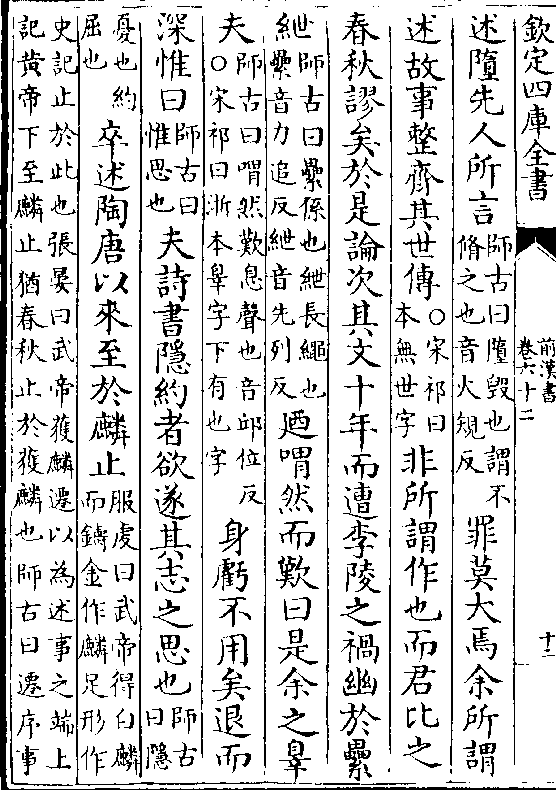 欽定四庫全書
前漢書
卷六十二
十二
述墮先人所言師古曰墮毀也謂不
脩之也音火規反罪莫大焉余所謂
述故事整齊其世傳○宋祁曰
本無世字非所謂作也而君比之
春秋謬矣於是論次其文十年而遭李陵之禍幽於纍
紲師古曰纍係也紲長繩也
纍音力追反紲音先列反迺喟然而歎曰是余之辠
夫師古曰喟然歎息聲也音邱位反
○宋祁曰浙本辠字下有也字身虧不用矣退而
深惟曰師古曰
惟思也夫詩書隱約者欲遂其志之思也師古
曰隱
憂也約
屈也卒述陶唐以來至於麟止服虔曰武帝得白麟
而鑄金作麟足形作
史記止於此也張晏曰武帝獲麟遷以為述事之端上
記黄帝下至麟止猶春秋止於獲麟也師古曰遷序事